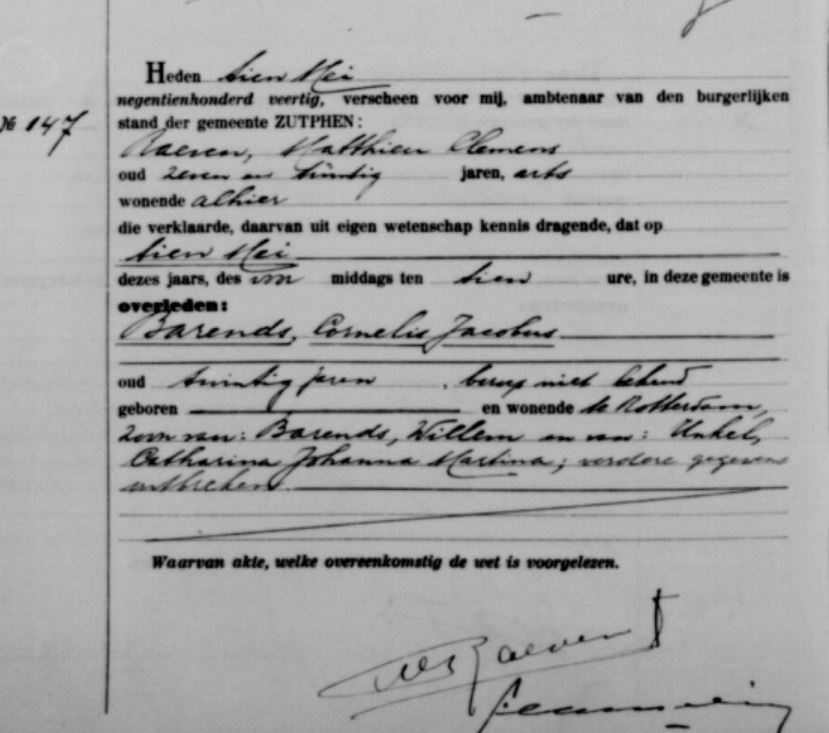 Heden tien Mei
negentienhonderd veertig, verscheen voor mij, ambtenaar van den burgerlijken
№ 147
stand der gemeente ZUTPHEN:
Raeven, Matthieu Clemens
oud zeven en twintig jaren, arts
wonende alhier
die verklaarde, daarvan uit eigen wetenschap kennis dragende, dat op
tien Mei
dezes jaars, des voor middags ten tien ure, in deze gemeente is
overleden:
Barends, Cornelis Jacobus
oud twintig jaren, beroep niet bekend
geboren en wonende te Rotterdam,
zoon van: Barends, Willem en van: Unkel,
Catharina Johanna Martina; verdere gegevens
ontbreken.
Waarvan akte, welke overeenkomstig de wet is voorgelezen.
Raeven